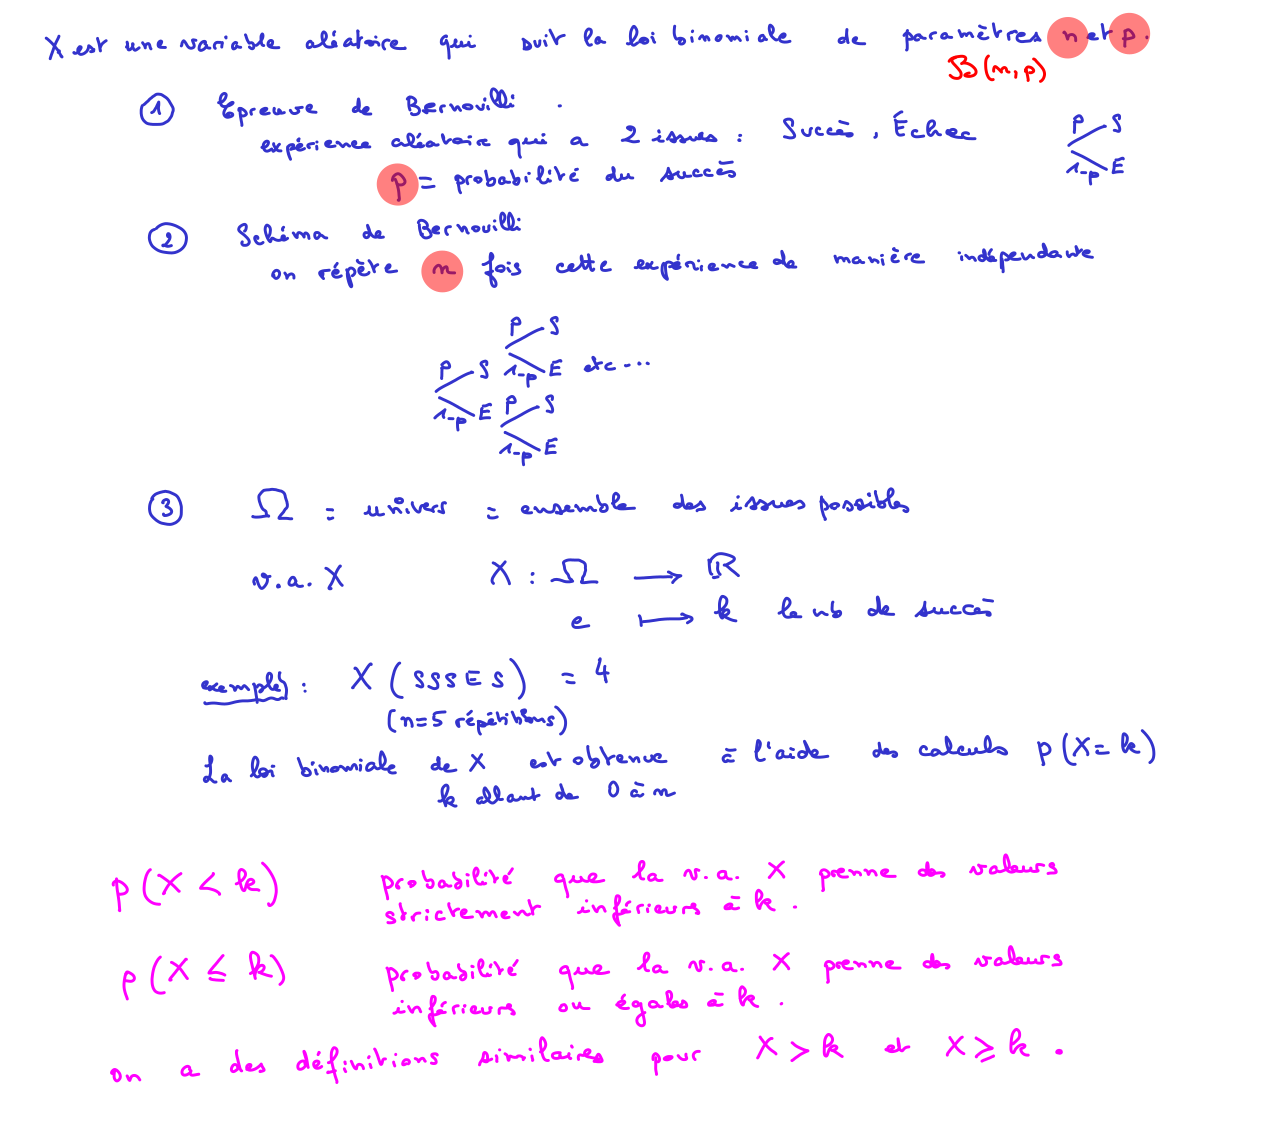 X est une variable aléatoire qui suit la loi binomiale de paramètres n et p.
B(n, p)
① Epreuve de Bernouilli .
expérience aléatoire qui a 2 issues : Succès , Échec
p S
1-p E
p = probabilité du succès
② Schéma de Bernouilli
on répète n fois cette expérience de manière indépendante
p S
p S 1-p E etc ...
1-p E p S
1-p E
③ Ω = univers = ensemble des issues possibles
v.a. X X : Ω ⟶ ℝ
e ⟼ k le nb de succès
exemple : X (SSSES) = 4
(n=5 répétitions)
La loi binomiale de X est obtenue à l'aide des calculs p(X = k)
k allant de 0 à n
p(X < k) probabilité que la v.a. X prenne des valeurs
strictement inférieurs à k .
p(X ≤ k) probabilité que la v.a. X prenne des valeurs
inférieurs ou égales à k .
on a des définitions similaires pour X > k et X ≥ k .